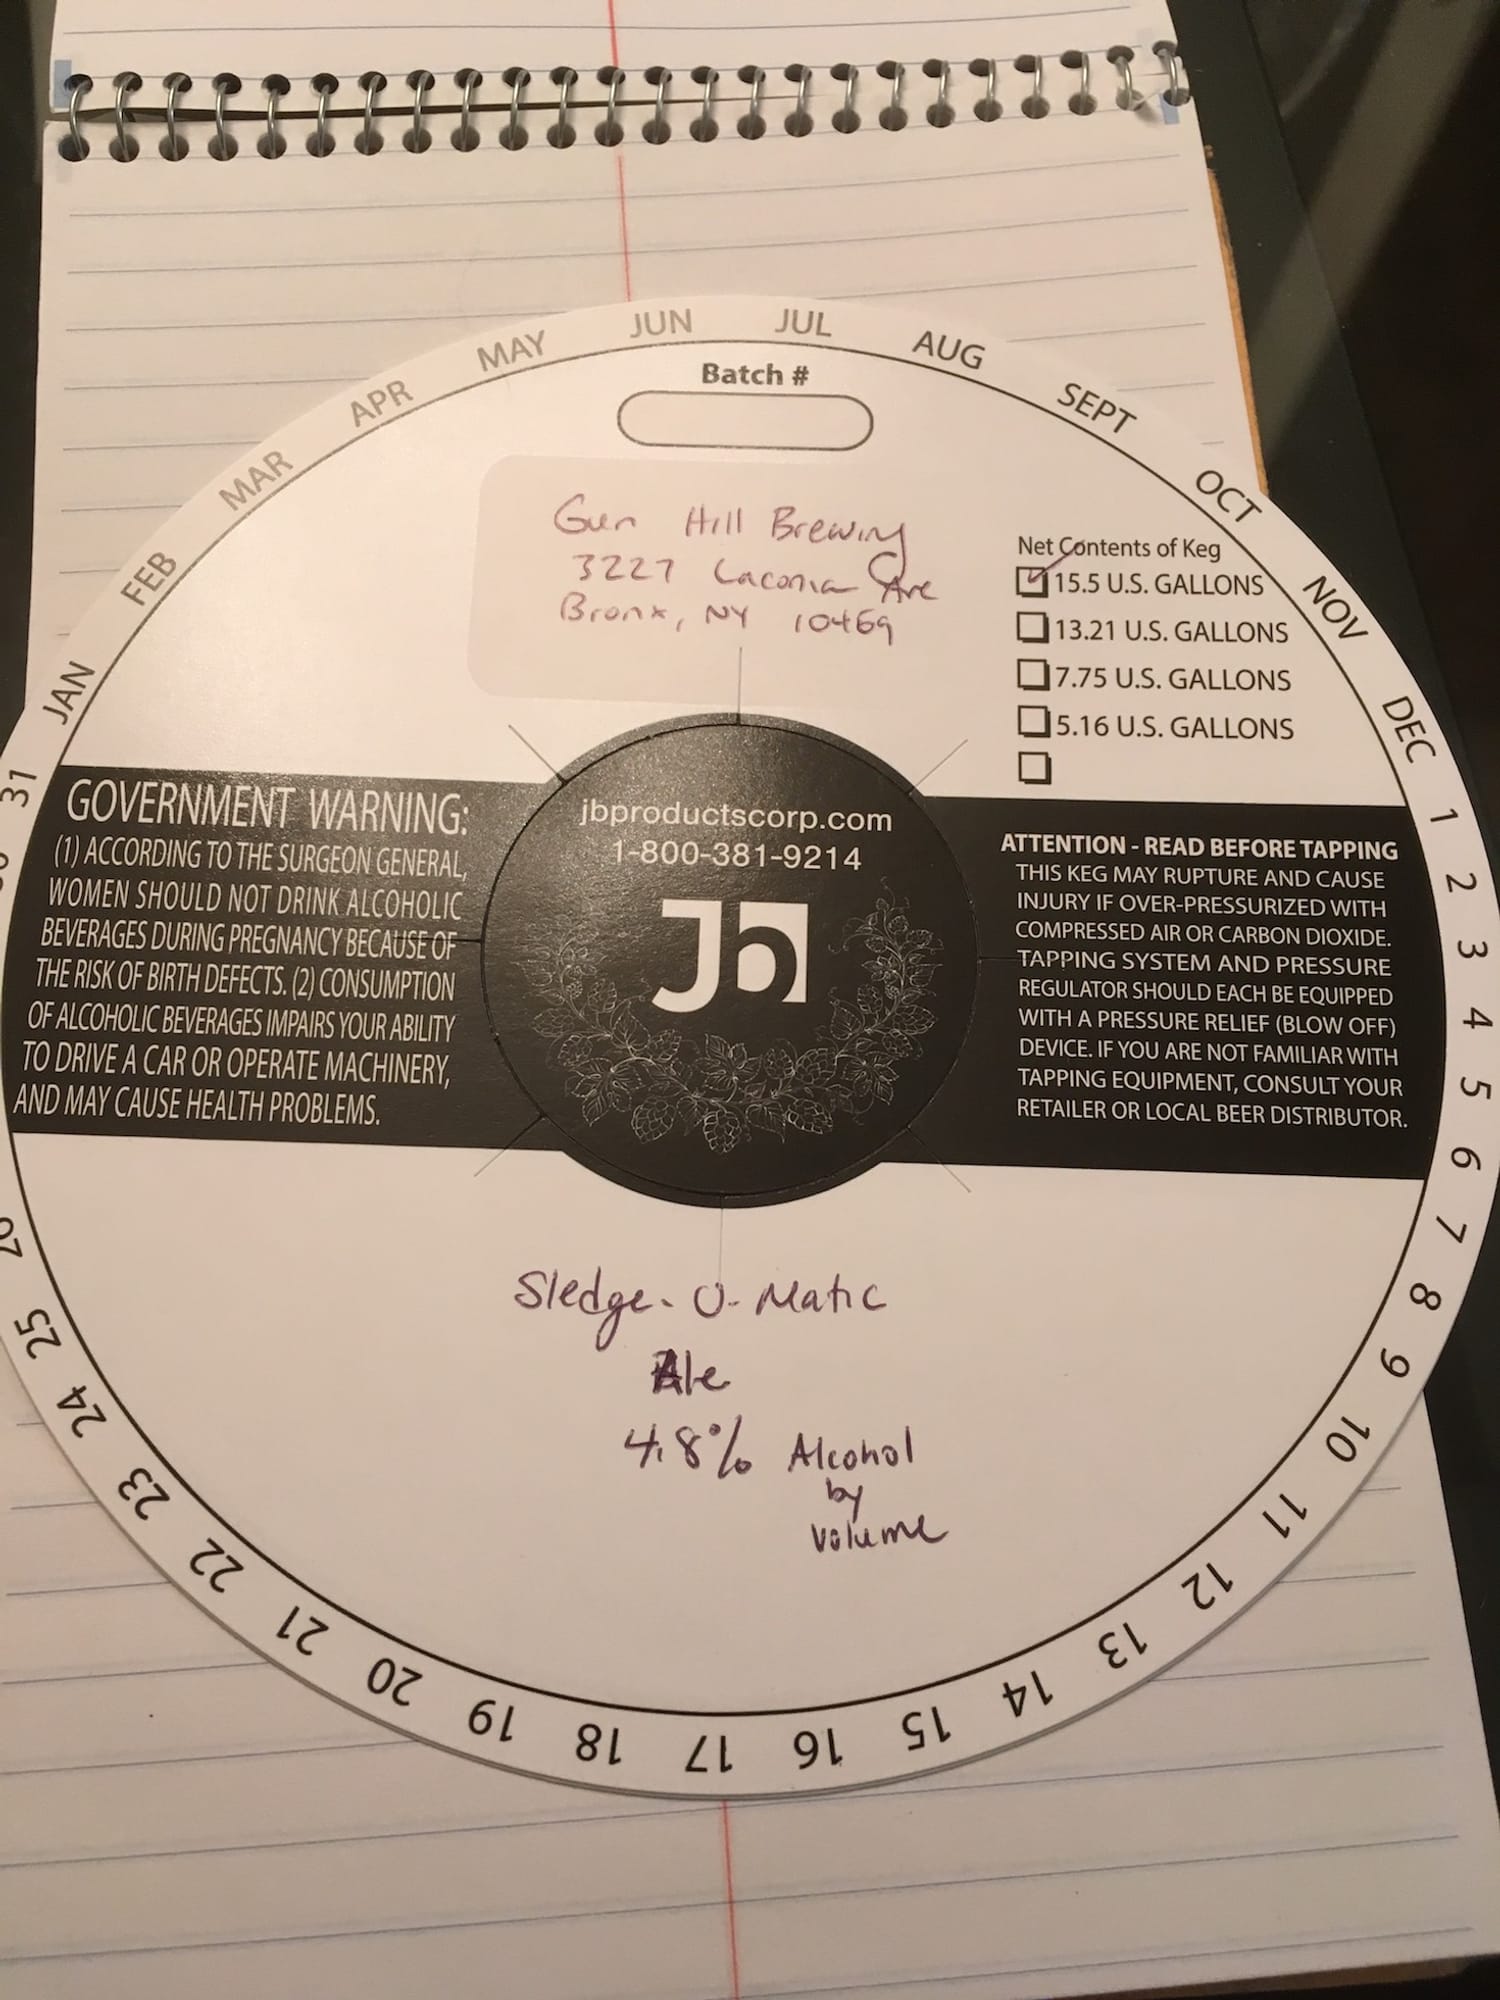 JAN FEB MAR APR MAY JUN JUL AUG SEPT OCT NOV DEC
Batch #
Gun Hill Brewing
3227 Laconia Ave
Bronx, NY 10469
Net Contents of Keg
15.5 U.S. GALLONS
13.21 U.S. GALLONS
7.75 U.S. GALLONS
5.16 U.S. GALLONS
GOVERNMENT WARNING:
(1) ACCORDING TO THE SURGEON GENERAL,
WOMEN SHOULD NOT DRINK ALCOHOLIC
BEVERAGES DURING PREGNANCY BECAUSE OF
THE RISK OF BIRTH DEFECTS. (2) CONSUMPTION
OF ALCOHOLIC BEVERAGES IMPAIRS YOUR ABILITY
TO DRIVE A CAR OR OPERATE MACHINERY,
AND MAY CAUSE HEALTH PROBLEMS.
jbproductscorp.com
1-800-381-9214
Jb
ATTENTION - READ BEFORE TAPPING
THIS KEG MAY RUPTURE AND CAUSE
INJURY IF OVER-PRESSURIZED WITH
COMPRESSED AIR OR CARBON DIOXIDE.
TAPPING SYSTEM AND PRESSURE
REGULATOR SHOULD EACH BE EQUIPPED
WITH A PRESSURE RELIEF (BLOW OFF)
DEVICE. IF YOU ARE NOT FAMILIAR WITH
TAPPING EQUIPMENT, CONSULT YOUR
RETAILER OR LOCAL BEER DISTRIBUTOR.
Sledge-O-Matic
Ale
4.8% Alcohol
by
volume
1 2 3 4 5 6 7 8 9 10 11 12 13 14 15 16 17 18 19 20 21 22 23 24 25 31